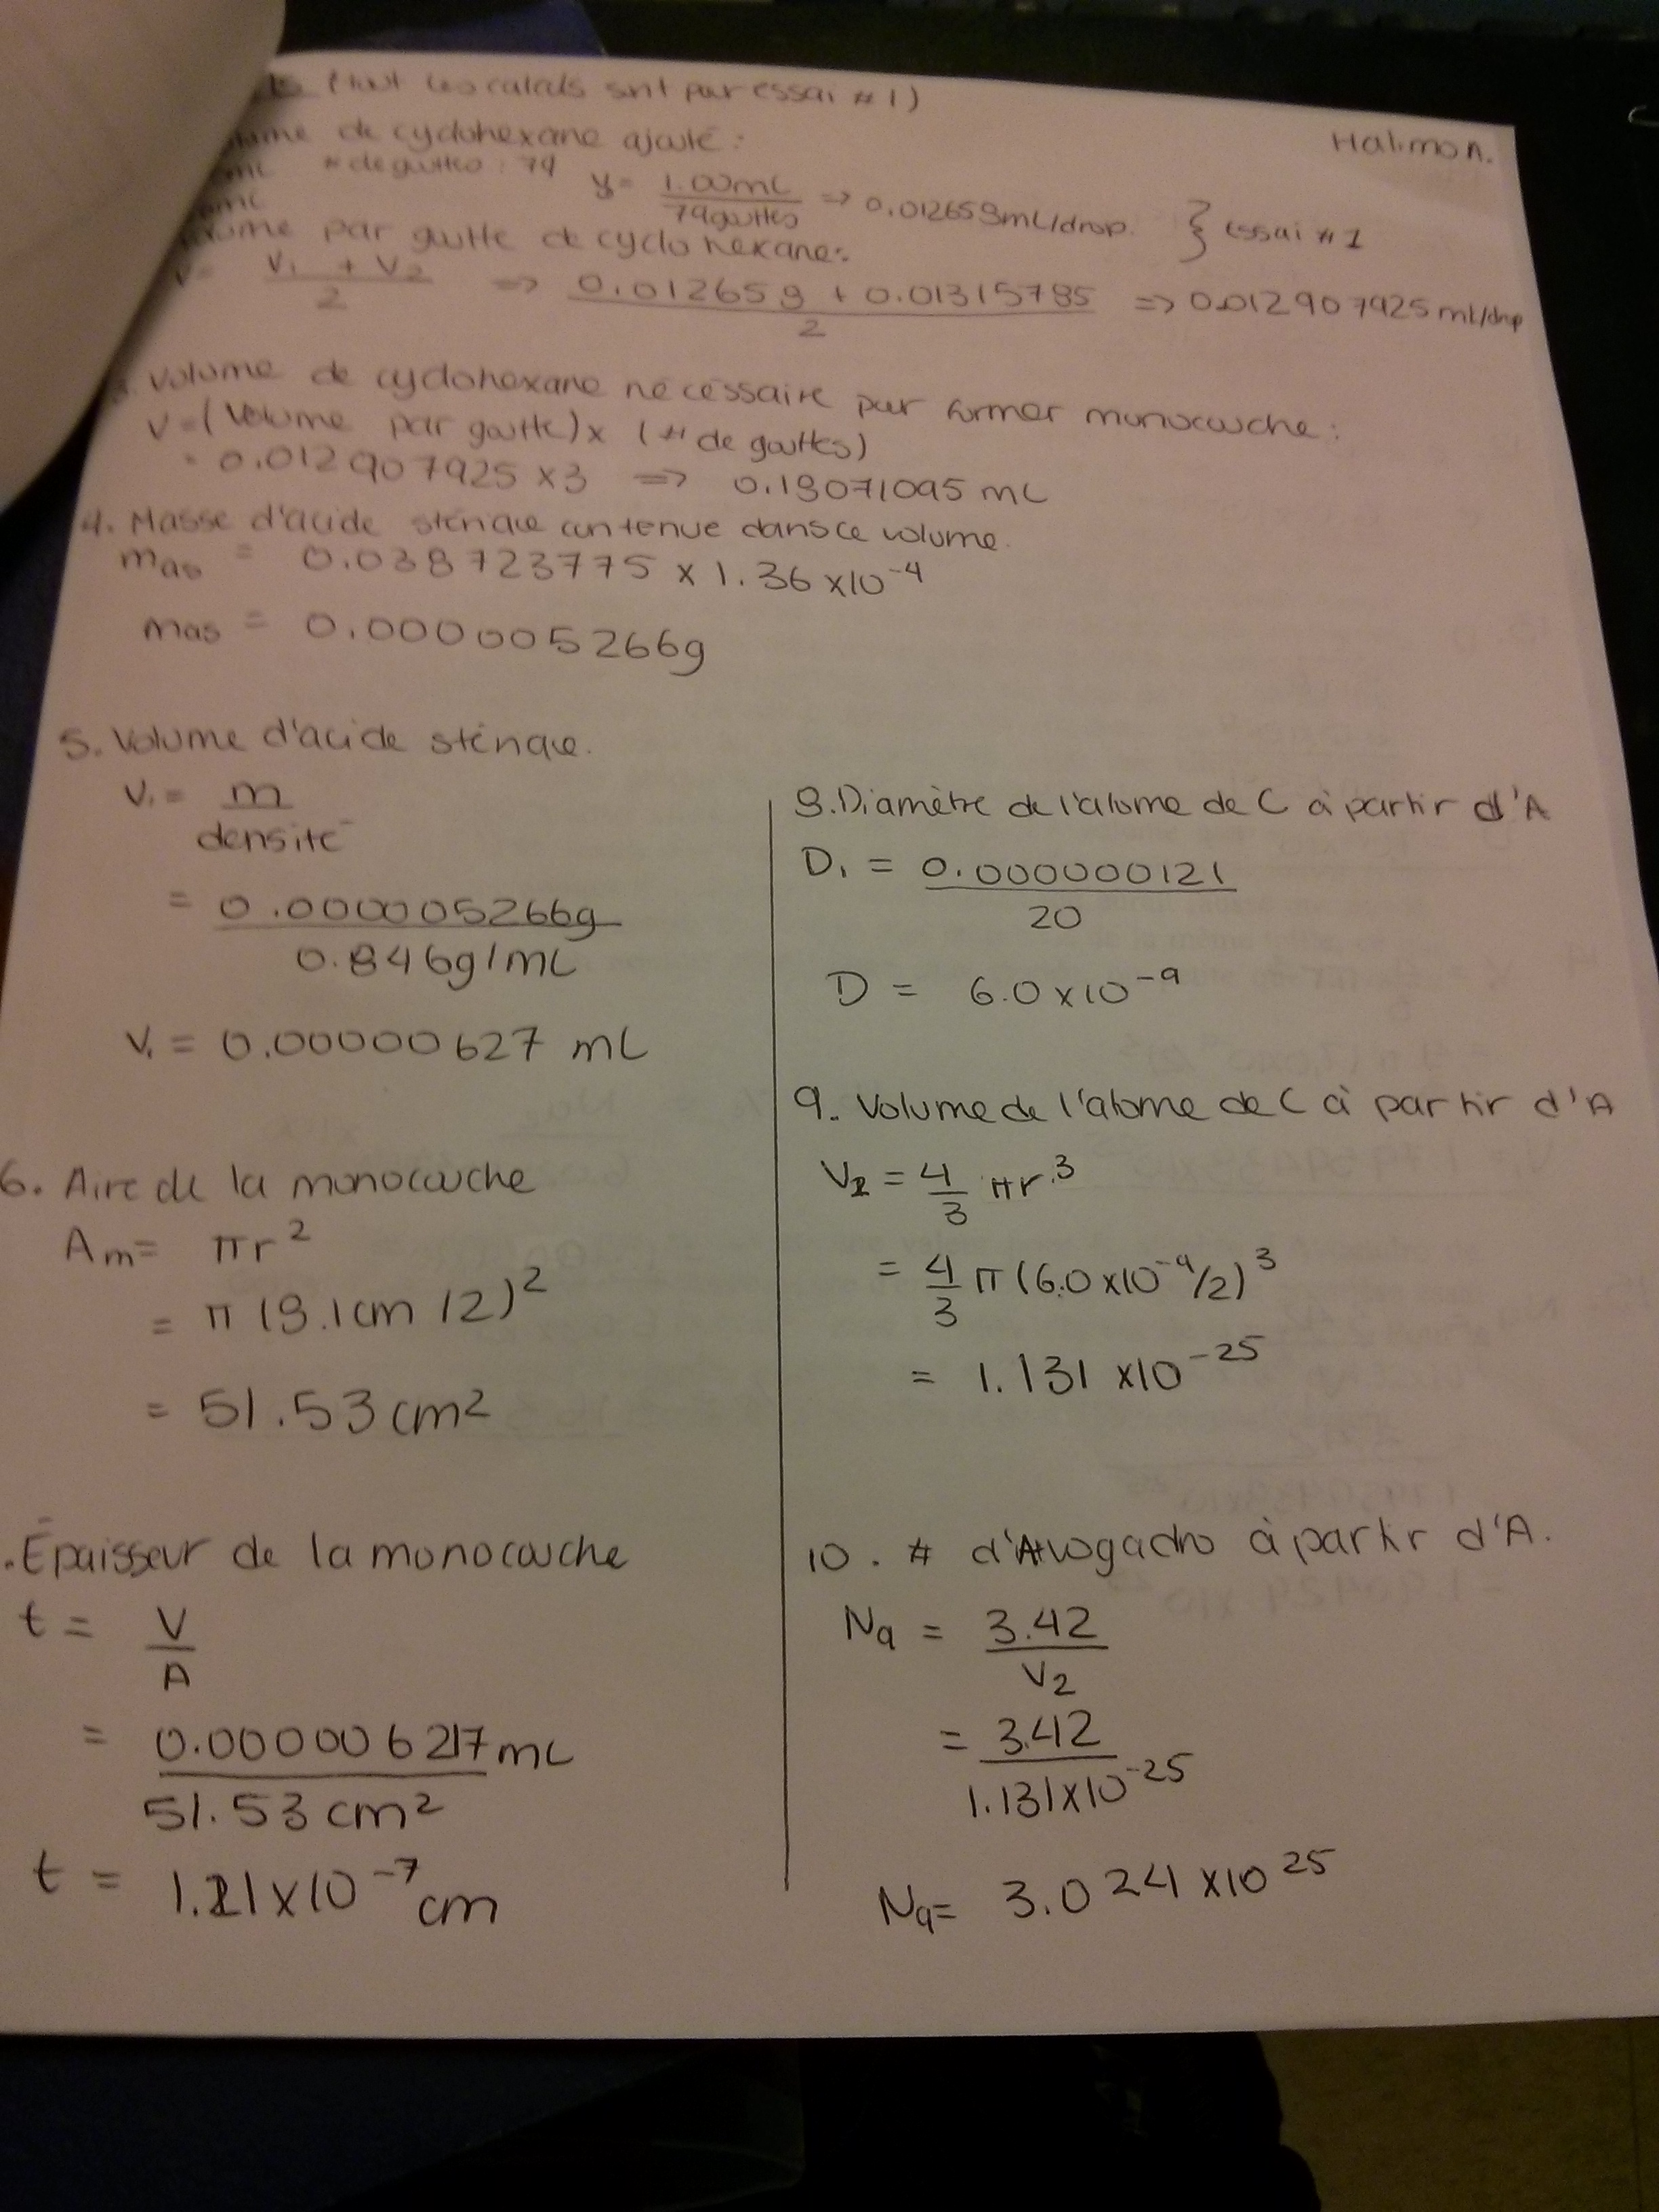 (tout les calculs sont pour essai # 1)
Halimo A.
de cyclohexane ajouté :
mL # de gouttes : 79 y = 1.00mL / 79 gouttes => 0.012658mL/drop. } essai # 1
mL
par goutte de cyclohexane:
V1 + V2 / 2 => 0.012658 + 0.01315785 / 2 => 0.012907925 mL/drop
Volume de cyclohexane nécéssaire pour former monocouche :
V = (Volume par goutte) x (# de gouttes)
= 0.012907925 x 3 => 0.18071095 mL
4. Masse d'acide stérique contenue dans ce volume.
mas = 0.038723775 x 1.36 x10⁻⁴
mas = 0.000005266g
5. Volume d'acide stérique.
V1 = m / densité
= 0.000005266g / 0.846g/mL
V1 = 0.00000627 mL
6. Aire de la monocouche
Am = πr²
= π (8.1cm /2)²
= 51.53 cm²
. Épaisseur de la monocouche
t = V / A
= 0.000006217 mL / 51.53 cm²
t = 1.21 x 10⁻⁷ cm
8. Diamètre de l'atome de C à partir d'A
D1 = 0.000000121 / 20
D = 6.0 x10⁻⁹
9. Volume de l'atome de C à partir d'A
V2 = 4/3 πr³
= 4/3 π (6.0 x10⁻⁹/2)³
= 1.131 x10⁻²⁵
10. # d'Avogadro à partir d'A.
Na = 3.42 / V2
= 3.42 / 1.131x10⁻²⁵
Na= 3.024 x10²⁵